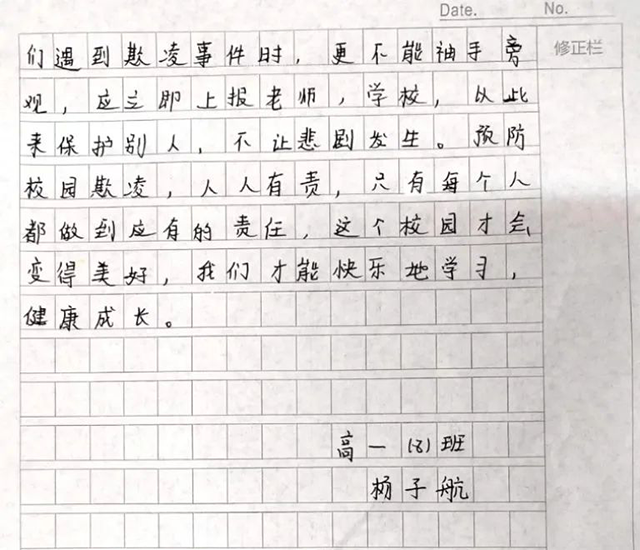 Date. No.
修正栏
们遇到欺凌事件时，更不能袖手旁
观，应立即上报老师，学校，以此
来保护别人，不让悲剧发生。预防
校园欺凌，人人有责，只有每个人
都做到应有的责任，这个校园才会
变得美好，我们才能快乐地学习，
健康成长。
高一（8）班
杨子航